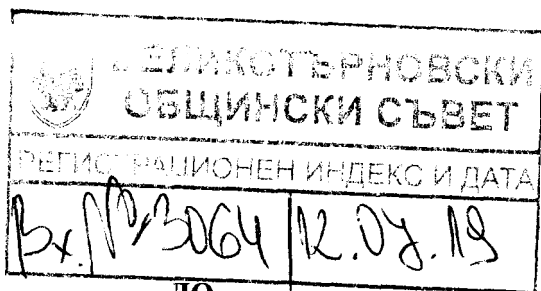 ВЕЛИКОТЪРНОВСКИ
ОБЩИНСКИ СЪВЕТ
РЕГИСТРАЦИОНЕН ИНДЕКС И ДАТА
Вх.№ 3064 12.07.19
ДО